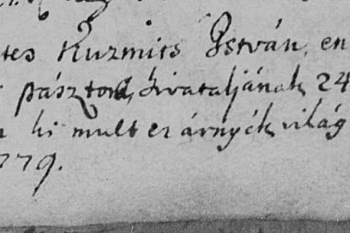 tes Kuzmits István, en
pásztora, hivataljának 24
ki mult ez árnyék világ
779.